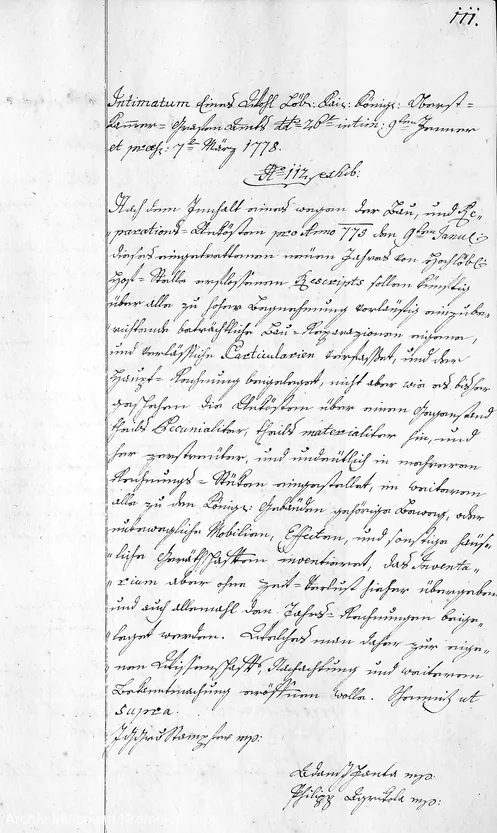 111.
Intimatum Eines Wohl Löbl: Kais: Königl: Oberst=
Kammer= Grafen Amts dto 26t intim: 9ten Jenner
et præs: 7t März 1778.
No 112 exhib:
Nach dem Innhalt eines wegen der Bau, und Re=
parations= Unkösten pro Anno 773 den 9ten Januj:
dieses eingetrettenen neuen Jahres von Hochlöbl:
Hof= Stelle erflossenen Rescripts sollen künftig
über alle zu hoher Begnehmung vorläufig einzube=
richtende beträchtliche Bau= Reparazionen eigene,
und verläßliche Particularien verfasset, und der
Haupt= Rechnung beigeleget, nicht aber wie es bisher
geschehen die Unkösten über einen Gegenstand
theils Pecunialiter, theils materialiter hin, und
her zerstreuter, und undeutlich in mehreren
Rechnungs= Stüken eingestellet, im weiteren
alle zu den Königl: Gebäuden gehörige Beweg, oder
unbewegliche Mobilien, Effecten, und sonstige häus=
liche Geräthschaften inventiret, das Inventa=
rium aber ohne Zeit= Verlust hieher übergeben
und auch allemahl den Jahrs= Rechnungen beige=
leget werden. Welches man daher zur eige=
nen Wissenschaft, Nachachtung und weiteren
Bekanntmachung eröffnen wolle. Schemnitz ut
supra.
Stampfer mp:
Adam Janta mp:
Philipp Agrikola mp: